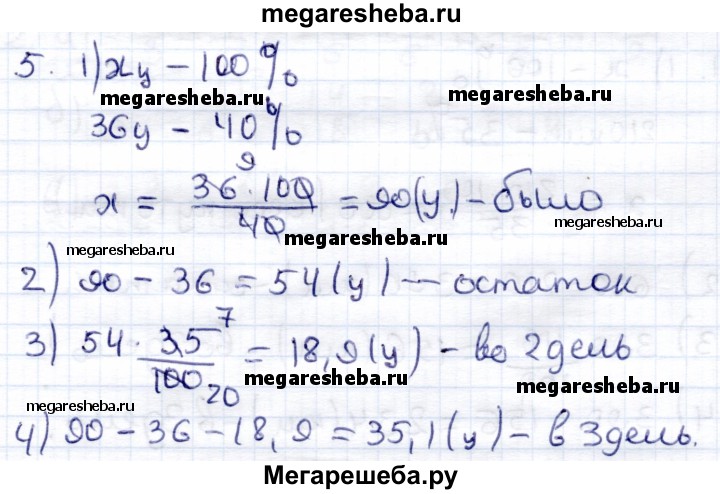 megaresheba.ru
5. 1) xц – 100%
megaresheba.ru megaresheba.ru
36ц – 40%
x = 36·100/40 = 90(ц) – было
9
megaresheba.ru megaresheba.ru megaresheba.ru
2) 90 – 36 = 54(ц) – остаток
3) 54 · 35/100 = 18,9(ц) – во 2 день
7
20
megaresheba.ru megaresheba.ru megaresheba.ru
4) 90 – 36 – 18,9 = 35,1(ц) – в 3 день.
Мегарешеба.ру